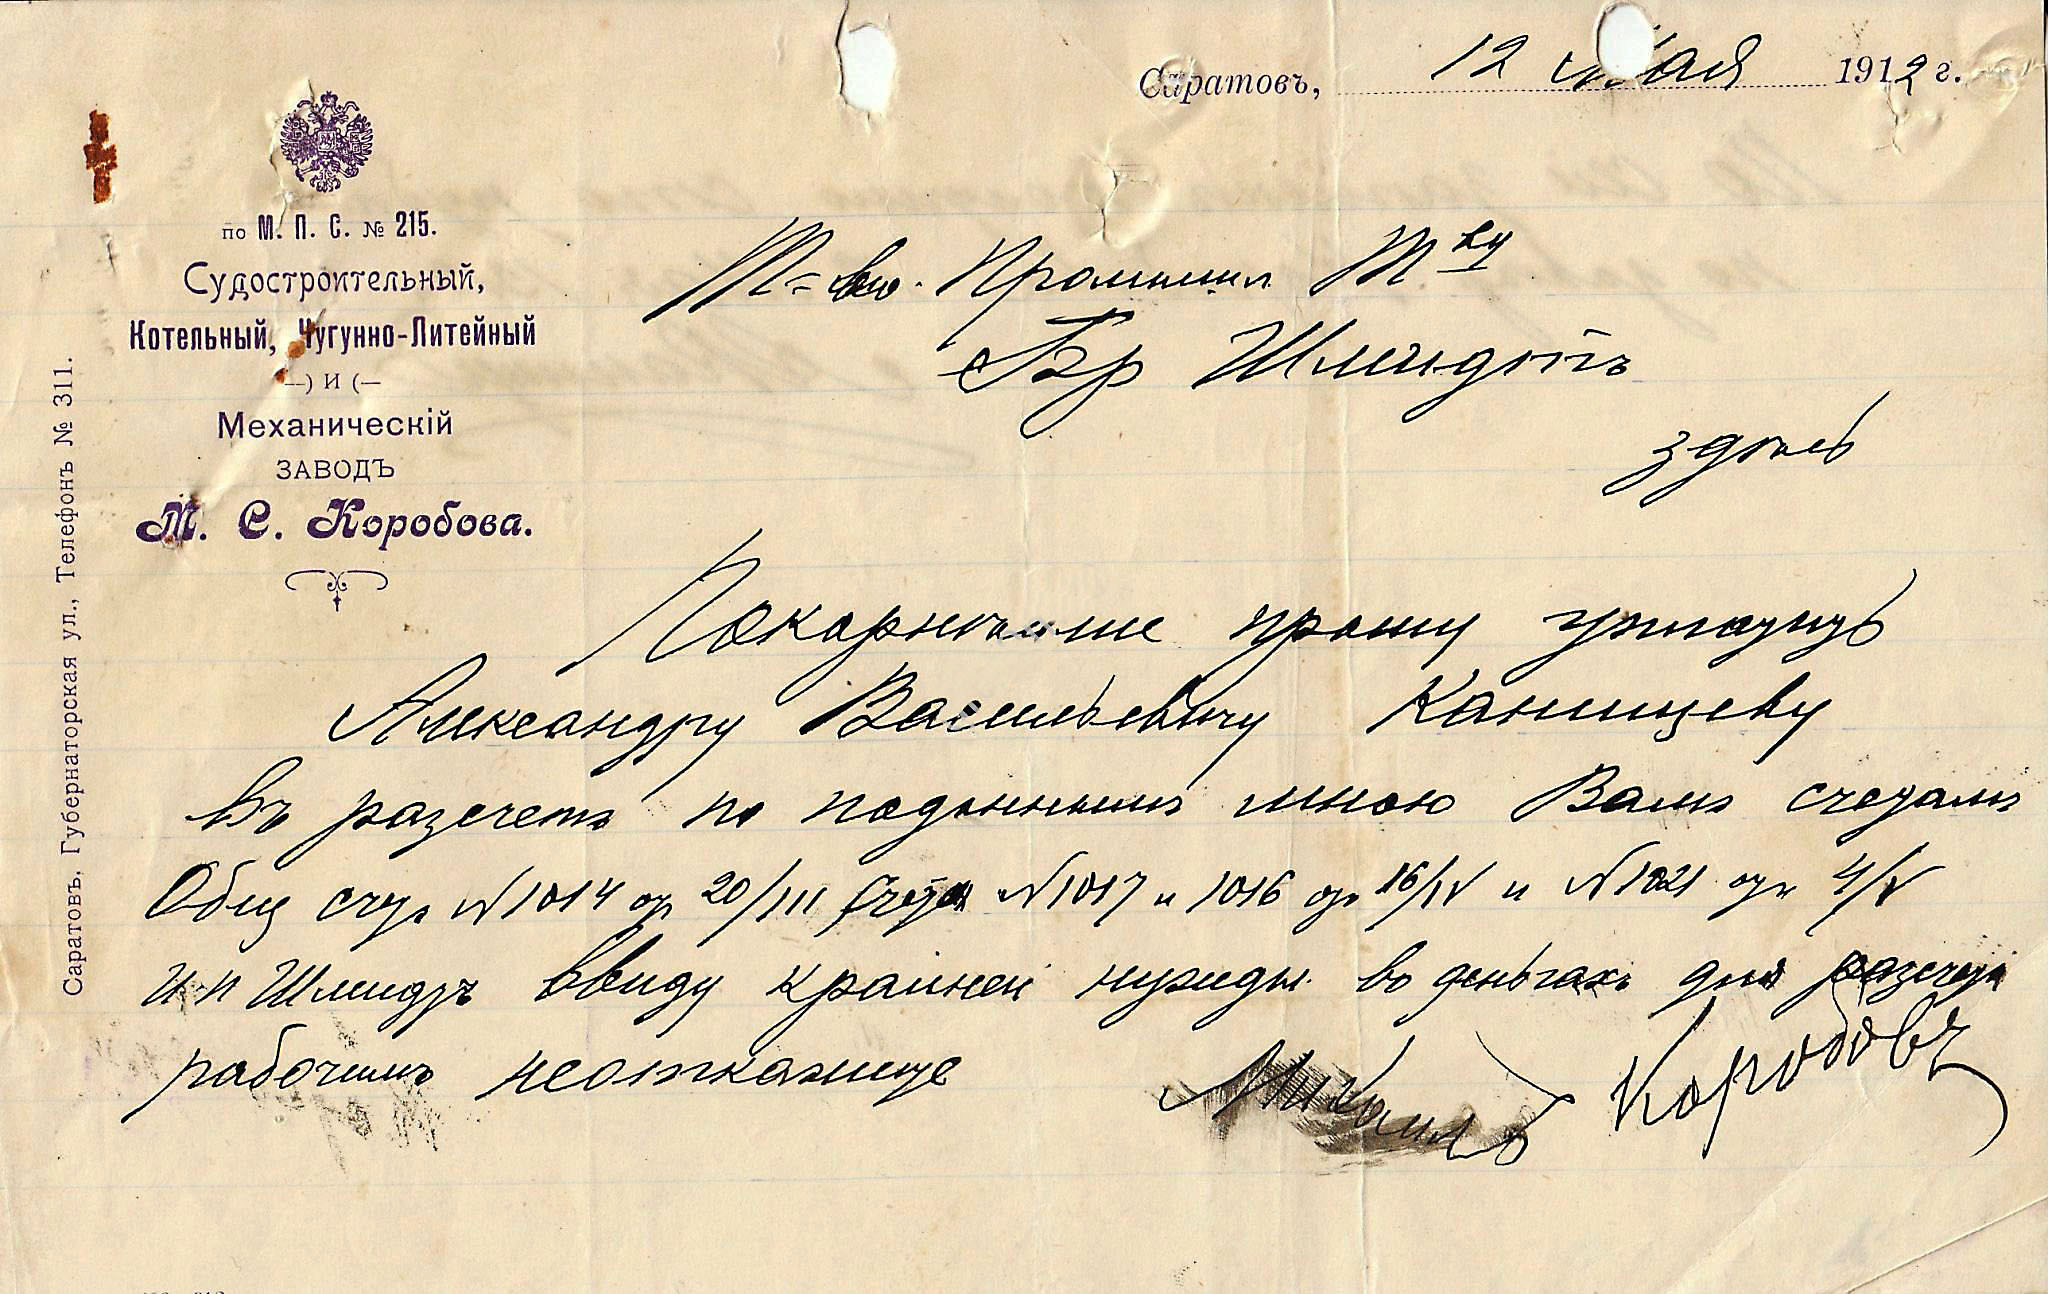 Саратовъ, 12 мая 1912 г.
по М. П. С. № 215.
Судостроительный,
Котельный, Чугунно-Литейный
—) И (—
Механическій
ЗАВОДЪ
М. С. Коробова.
Саратовъ, Губернаторская ул., Телефонъ № 311.
Т-во. Т ву
Бр Шмидтъ
здѣсь
Покорнейше прошу
Александру Васильевичу Канищеву
въ разсчетъ по поданнымъ мною Вамъ счетамъ
N 1014 от 20/III счета N 1017 и 1016 от 16/IV и N 1021 от 4/V
Шмидтъ ввиду крайней нужды во деньгахъ для разсчета
рабочимъ неоткажите
Михаилъ Коробовъ